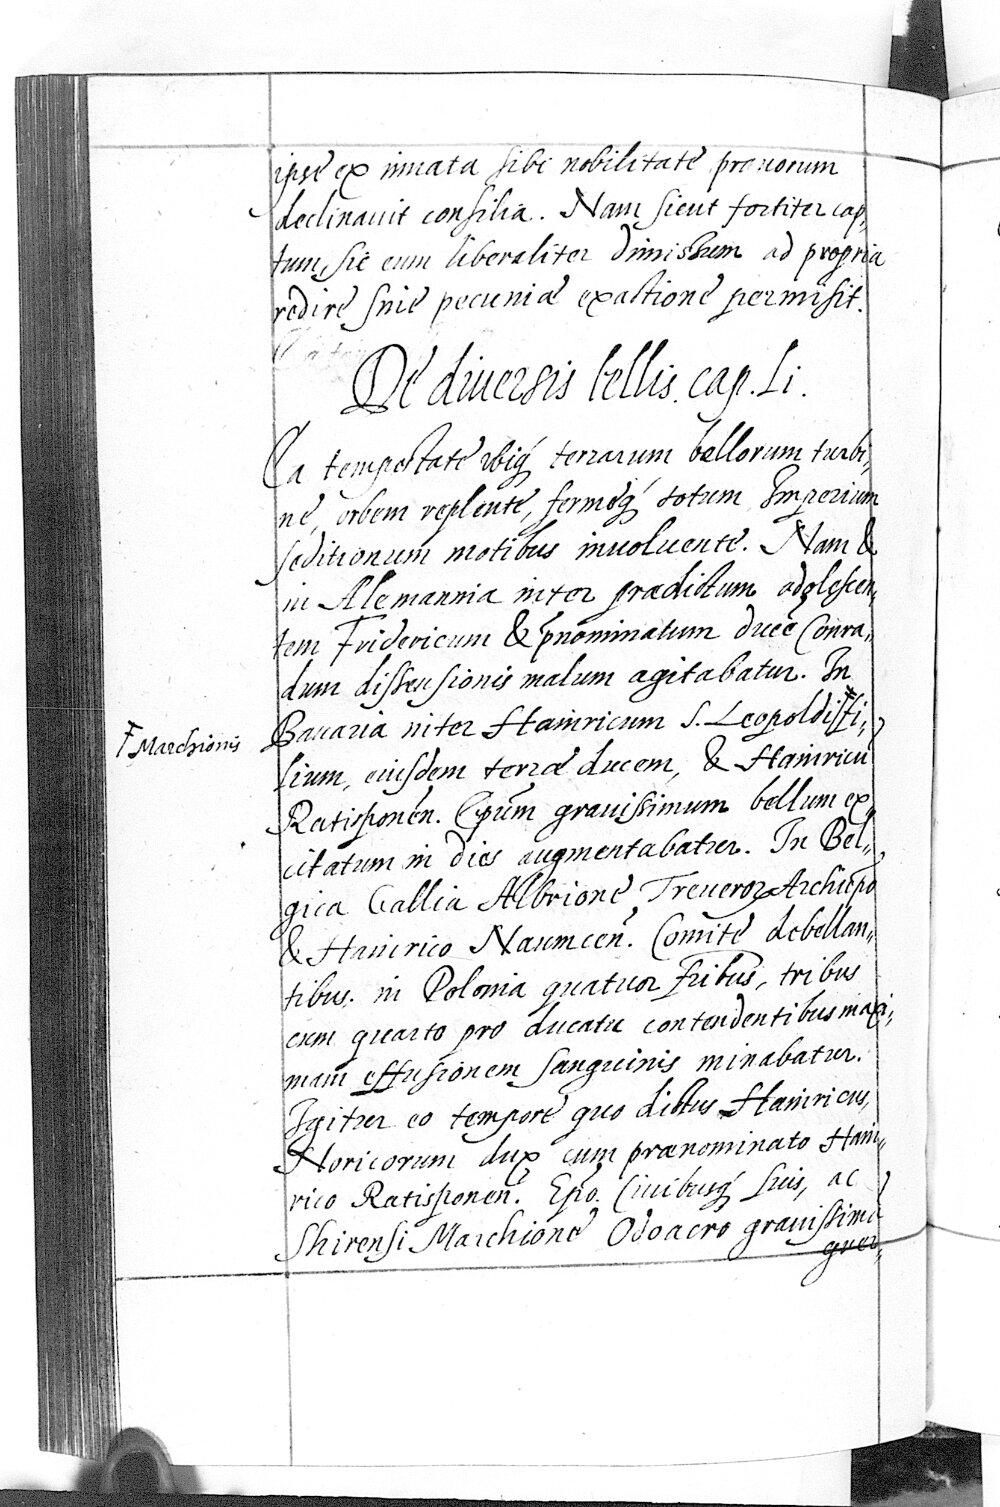 ipse ex innata sibi nobilitate prauorum
declinauit consilia. Nam sicut fortiter cap„
tum, sic eum liberaliter dimissum ad propria
redire sine pecuniæ exactione permisit.
De diuersis bellis. cap. Li.
Ea tempestate vbiq́ terrarum bellorum turbi„
ne, orbem replente, fermeq́ totum Imperium
seditionum motibus inuoluente. Nam &
in Alemannia inter prædictum adolescen„
tem Fridericum & p̄nominatum ducē Conra„
dum dissensionis malum agitabatur. In
Bauaria inter Hainricum S. Leopoldi Ŧ fi„
Ŧ Marchionis
lium, eiusdem terræ ducem, & Hainricū
Ratisponen̄. Ep̄um grauissimum bellum ex„
citatum in dies augmentabatur. In Bel„
gica Gallia Albrione Treueroꝝ Archiep̄o
& Hainrico Naumcen̄. Comite debellan„
tibus. in Polonia quatuor fr̄ibus, tribus
cum quarto pro ducatu contendentibus maxi„
mam effusionem sanguinis minabatur.
Igitur eo tempore quo dictus Hainricus,
Noricorum dux cum prænominato Hain„
rico Ratisponen̄. Ep̄o. Ciuibusq́ suis, ac
Shirensi Marchione Odoacro grauissime
guer„